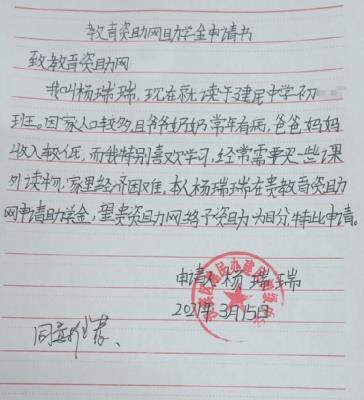 教育资助网助学金申请书
致教育资助网
我叫杨瑞瑞,现在就读于建民中学初
班。因家人口较多且爷爷奶奶常年有病,爸爸妈妈
收入较低,而我特别喜欢学习,经常需要买一些课
外读物,家里经济困难,本人杨瑞瑞在贵教育资助
网申请助学金,望贵资助网给予资助为目分,特此申请。
申请人杨瑞瑞
2021年3月15日
同意推荐、